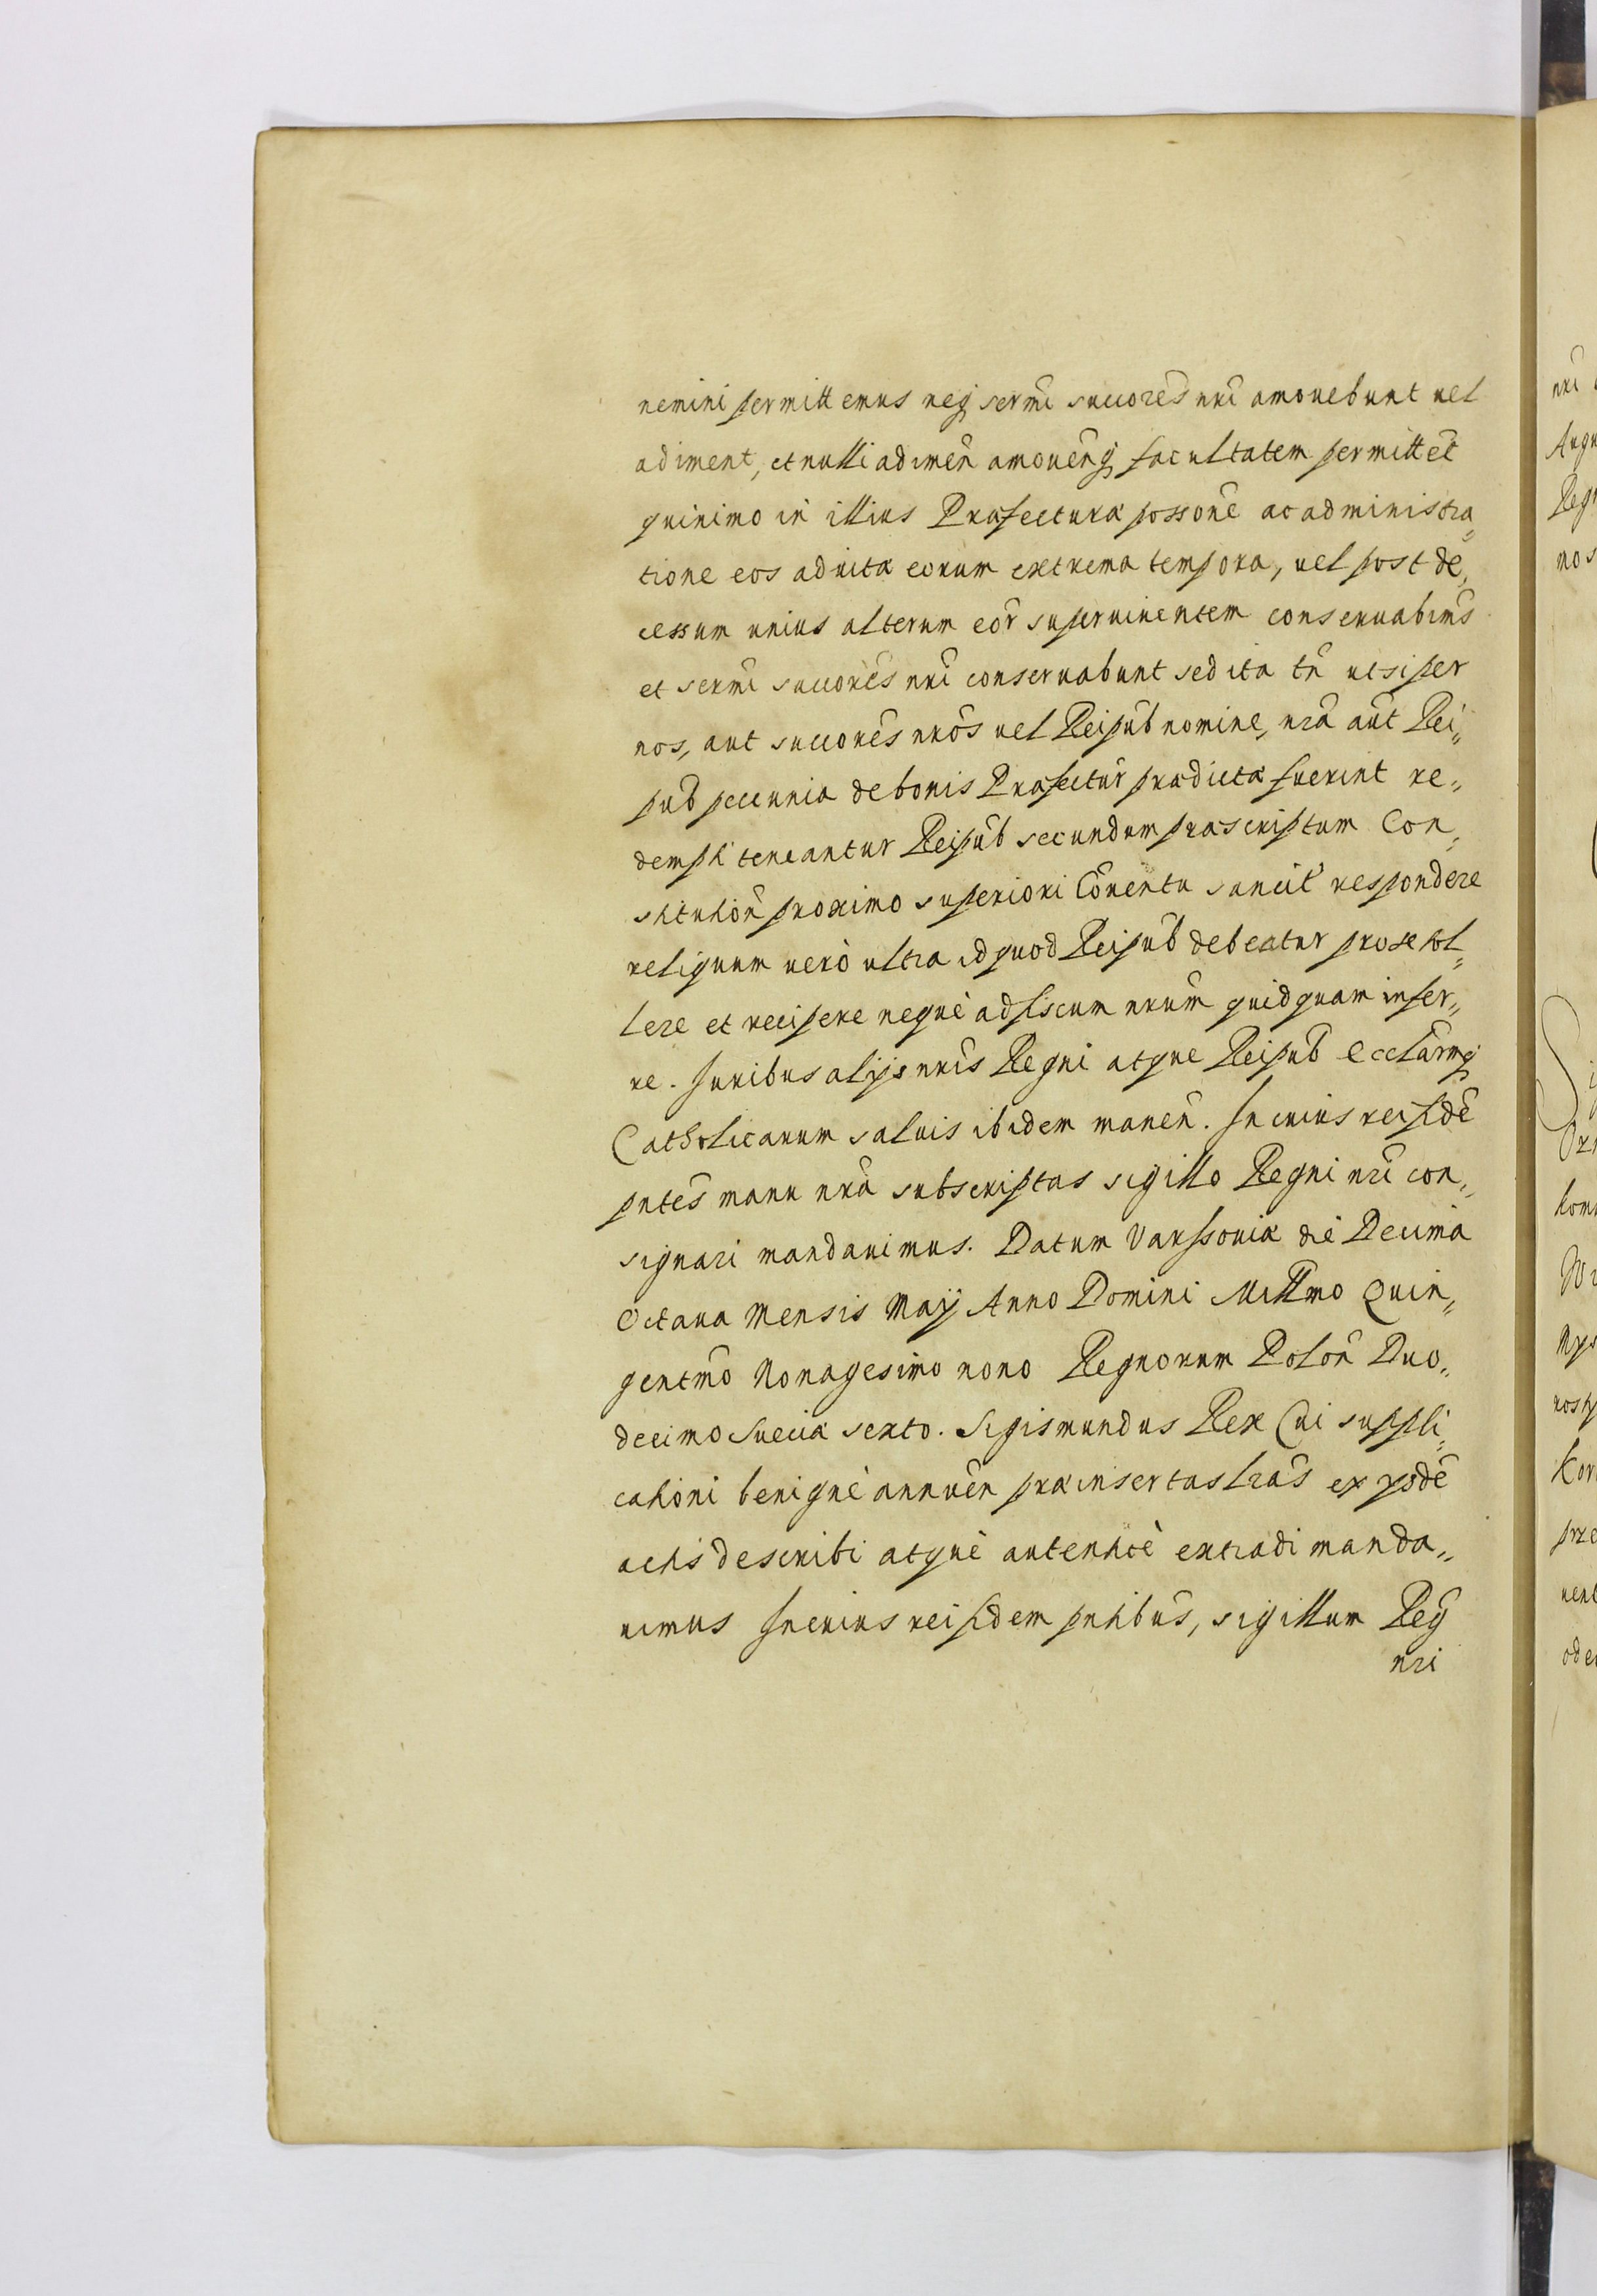 nemini permittemus neqꝫ sermi succores nri amouebunt uel
adiment, et nulli adimen amouenqꝫ facultatem permittet
quinimo in illius Præfecturæ possone ac administra„
tione eos ad uitæ eorum extrema tempora, uel post de„
cessum unius alterum eor superuiuentem conseruabims
et sermi succores nri conseruabunt sed ita tn ut si per
nos, aut succores nros uel Reipub nomine, nra aut Rei„
pub pecunia de bonis Præfectur prædictæ fuerint re„
dempti teneantur Reipub secundum præscriptum Con„
stitution proximo superiori Conentu sancit respondere
reliquum uerò ultra id quod Reipub debeatur pro se tol„
lere et recipere nequè ad fiscum nrum quidquam infer„
re. Juribus alijs nris Regni atque Reipub Ecclarmqꝫ
Catholicarum saluis ibidem manen. In cuius rei fide
pntes manu nra subscriptas sigillo Regni nri con„
signari mandauimus. Datum Varssouiæ die Decima
Octaua Mensis Maij Anno Domini Millmo Quin„
gentmo Nonagesimo nono Regnorum Polon Duo„
decimo Sueciæ sexto. Sigismundus Rex Cui suppli„
cationi benignè annuen præinsertas lras ex ijsde
actis describi atquè autenticè extradi manda„
uimus In cuius rei fidem pntibus, sigillum Reg
nri